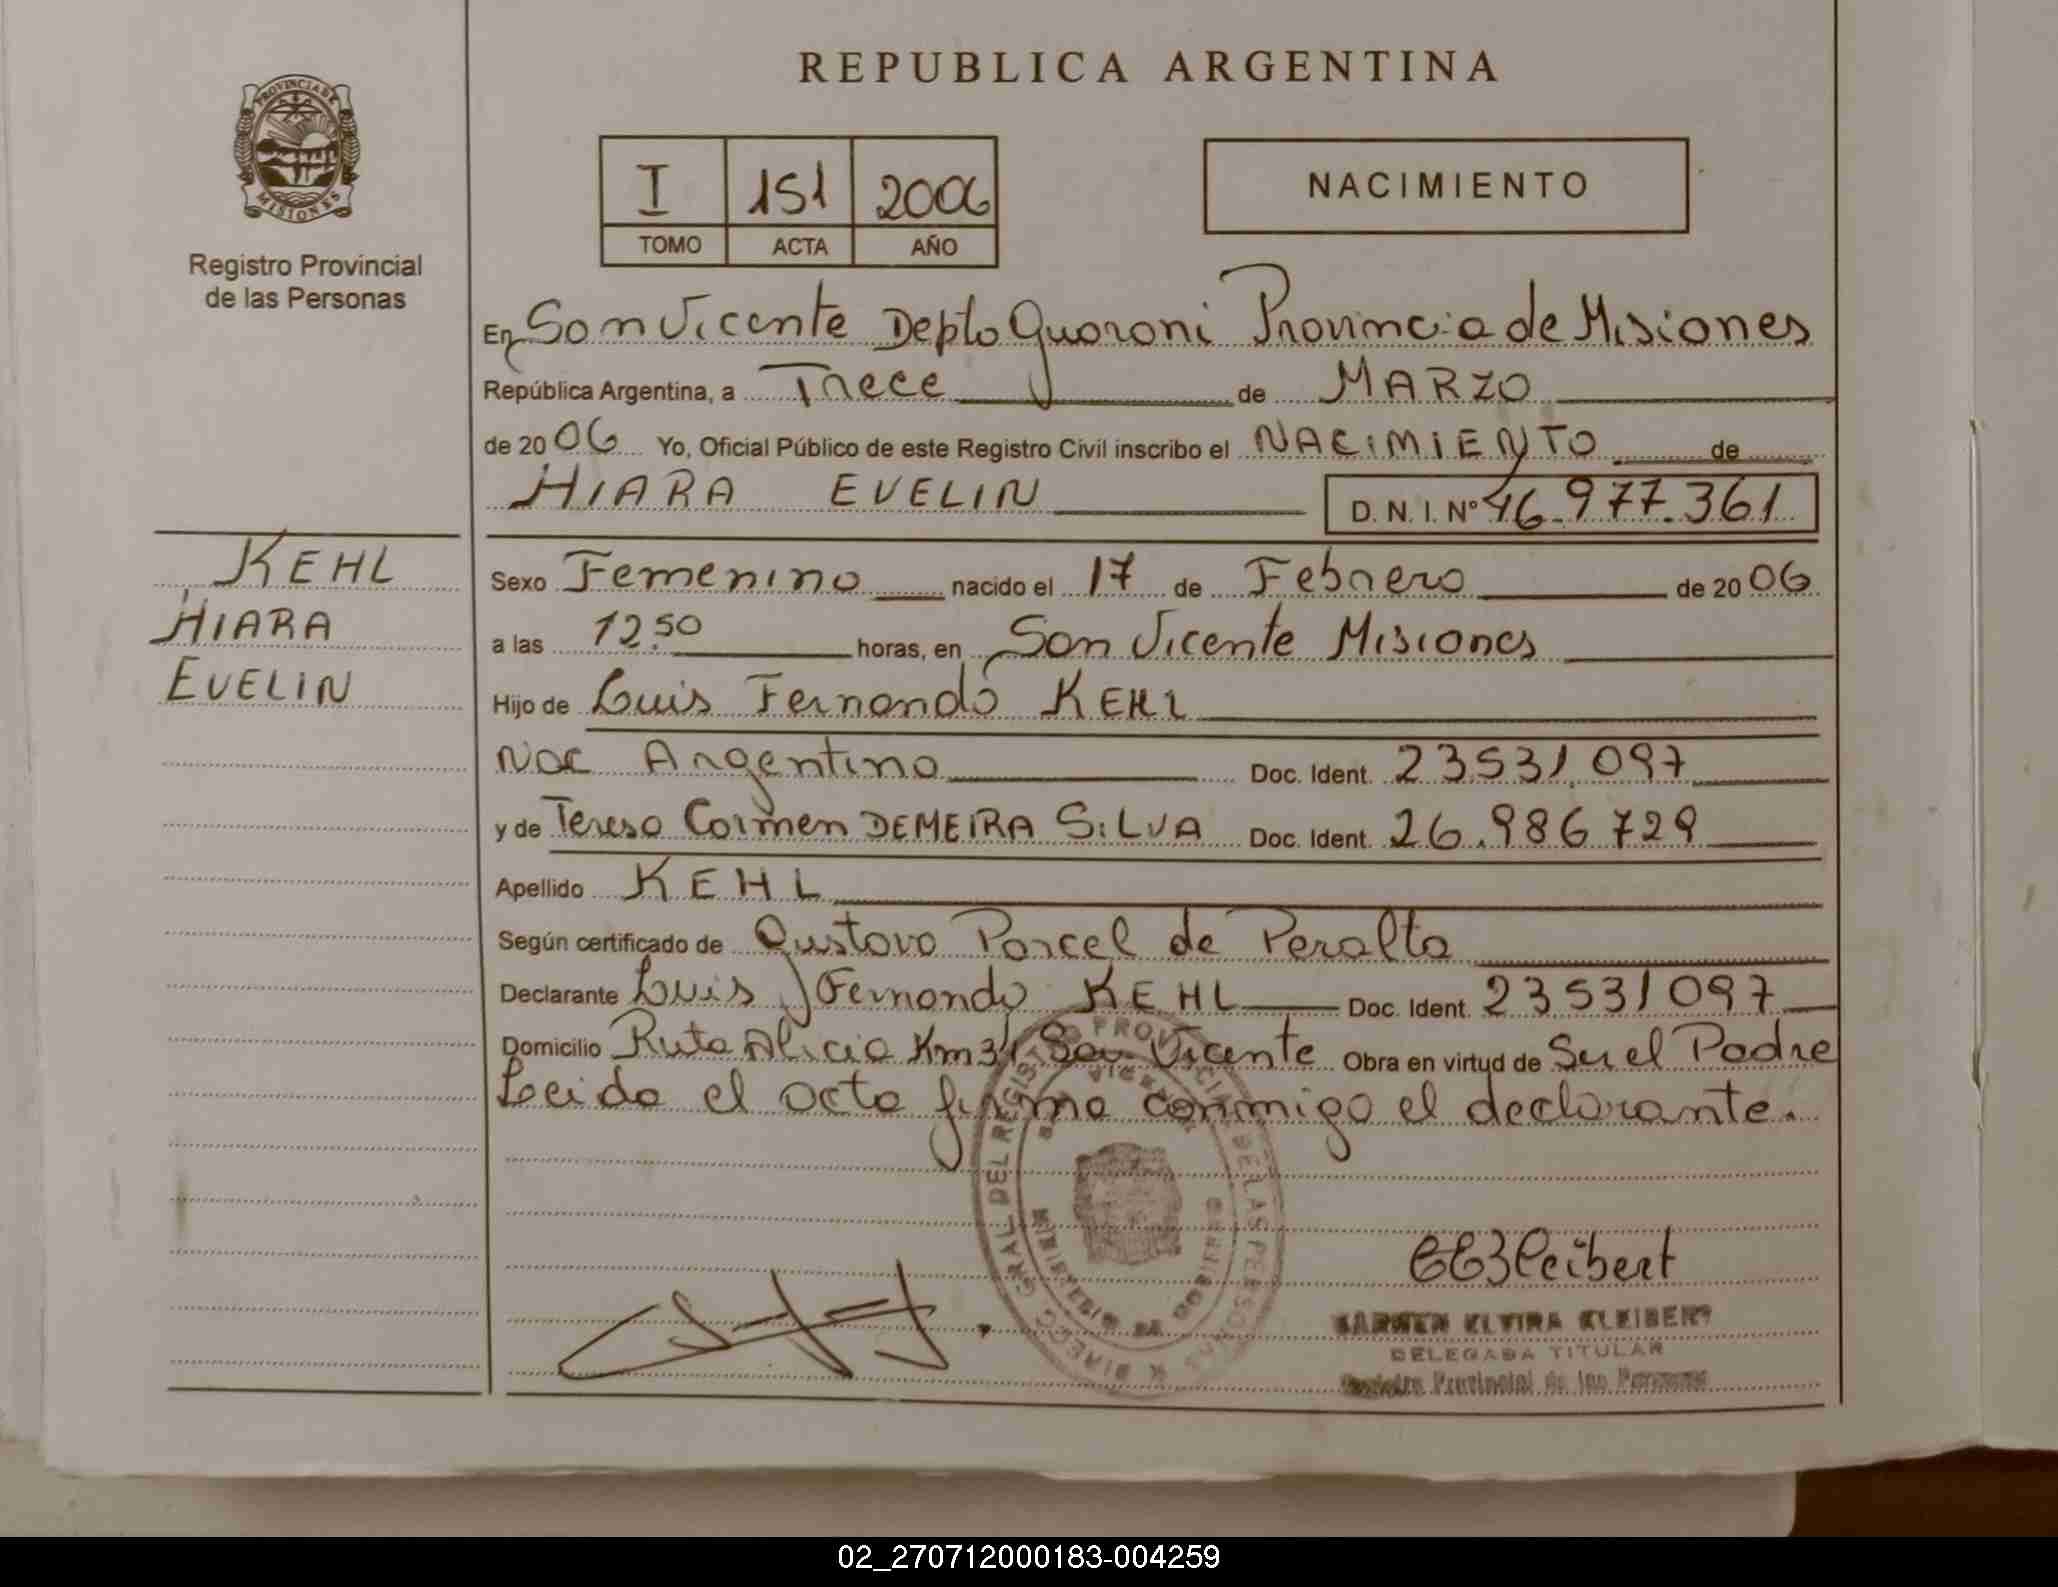 REPUBLICA ARGENTINA
PROVINCIA DE
MISIONES
Registro Provincial
de las Personas
I 151 2006
TOMO ACTA AÑO
NACIMIENTO
En San Vicente Depto Guarani Provincia de Misiones
República Argentina, a Trece de MARZO
de 2006 Yo, Oficial Público de este Registro Civil inscribo el NACIMIENTO de
HIARA EVELIN D. N. I. Nº 46.977.361
KEHL
HIARA
EVELIN
Sexo Femenino nacido el 17 de Febrero de 2006
a las 12.50 horas, en San Vicente Misiones
Hijo de Luis Fernando KEHL
Nac Argentino Doc. Ident. 23531.097
y de Teresa Carmen DEMEIRA SILVA Doc. Ident. 26.986729
Apellido KEHL
Según certificado de Gustavo Porcel de Peralta
Declarante Luis Fernando KEHL Doc. Ident. 23531097
Domicilio Ruta Alicia Km 31 San Vicente Obra en virtud de Ser el Padre
Leida el acta firma conmigo el declarante.
DIREC. GRAL DEL REGISTRO PROVINCIAL DE LAS PERSONAS
SAN VICENTE
MISIONES
KARMEN ELVIRA KLEIBERT
DELEGADA TITULAR
Registro Provincial de las Personas
02_270712000183-004259